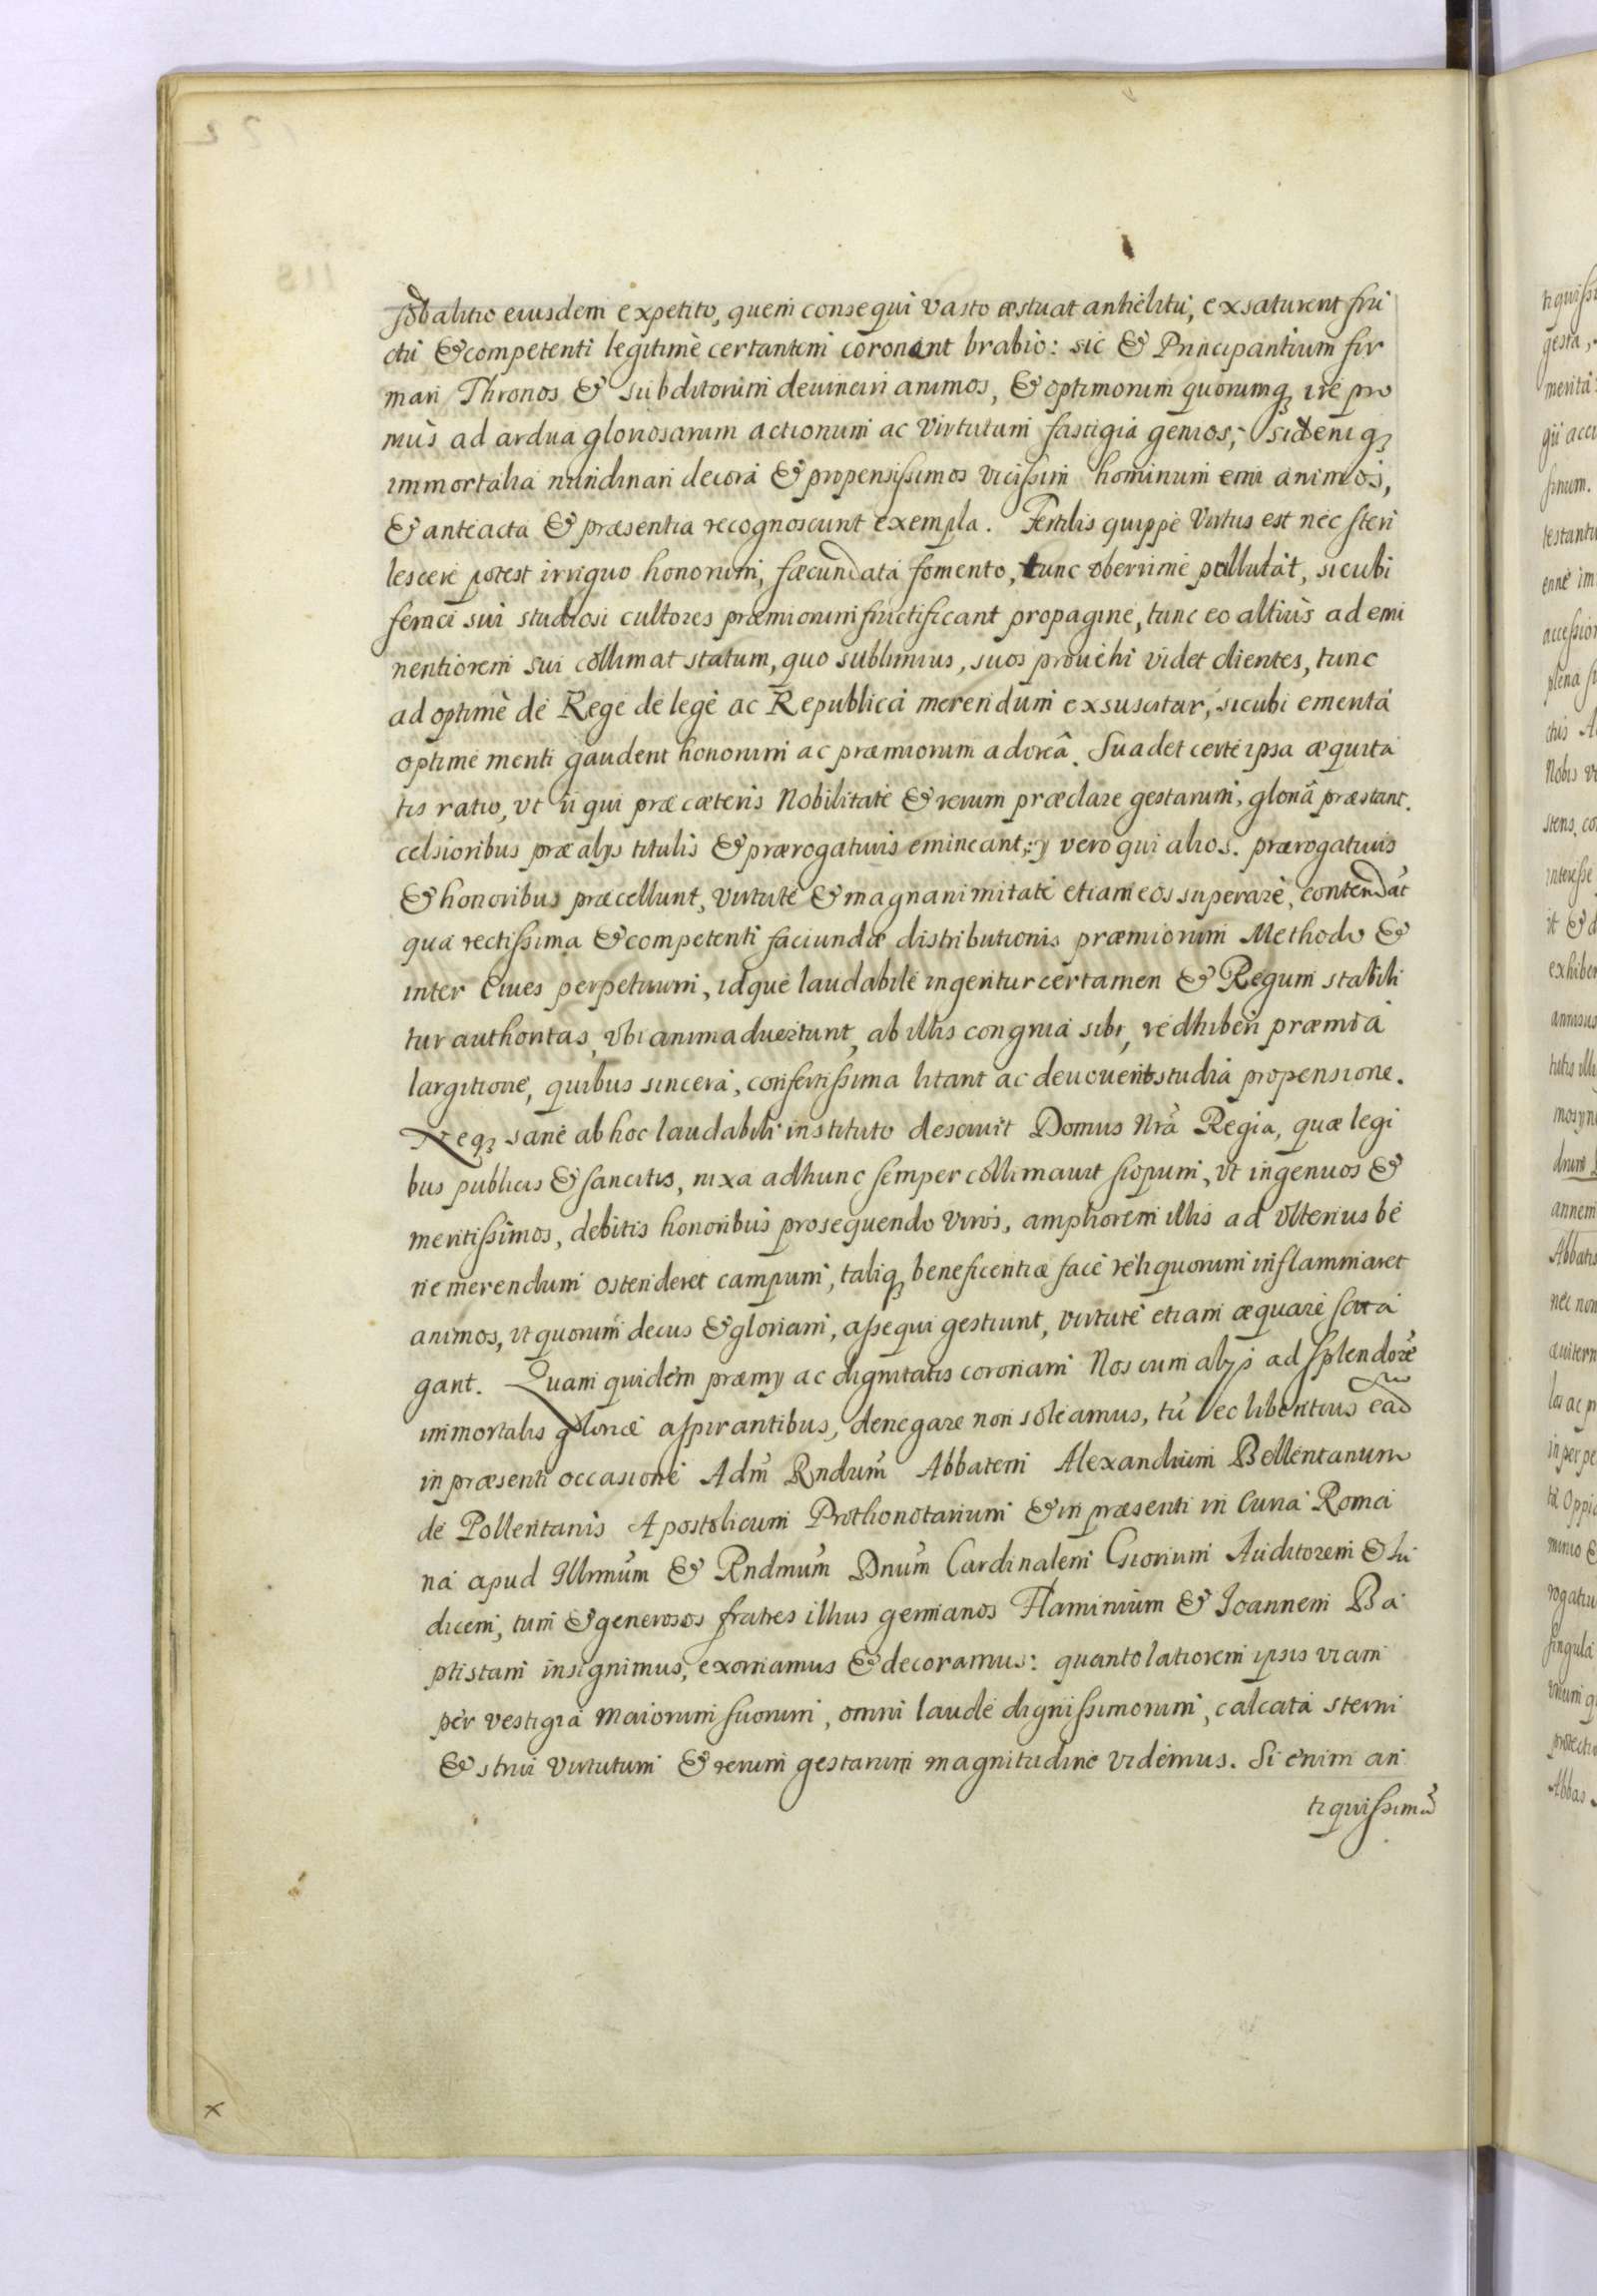 sobalitio eiusdem expetito, quem consequi vasto æstuat anhelitu, exsaturent fru
ctu & competenti legitimè certantem coronant brabio: sic & Principantium fir
mari Thronos & subditorum deuinciri animos, & optimorum quorumq3 ire pro
mus ad ardua gloriosarum actionum ac virtutum fastigia genios; sic deniq3
immortalia nundinari decora & propensissimos vicissim hominum emi animos,
& anteacta & præsentia recognoscunt exempla. Fertilis quippe virtus est nec steri
lescere potest irriguo honorum, fæcundata fomento, tunc vberrime pullulat, sicubi
feraci sui studiosi cultores præmiorum fructificant propagine, tunc eo altius ad emi
nentiorem sui collimat statum, quo sublimius, suos prouehi videt clientes, tunc
ad optimè de Rege de lege ac Republica merendum exsuscitar, sicubi ementa
optime meriti gaudent honorum ac præmiorum adoreâ. Suadet certe ipsa æquita
tis ratio, vt ii qui præ cæteris Nobilitate & rerum præclare gestarum, gloriâ præstant.
celsioribus præ alijs titulis & prærogatiuis emineant; ij vero qui alios. prærogatiuis
& honoribus præcellunt, virtute & magnanimitate etiam eos superare, contendāt
qua rectissima & competenti faciundæ distributionis præmiorum Methodo &
inter Ciues perpetuum, idque laudabile ingeritur certamen & Regum stabili
tur authoritas, vbi animaduertunt, ab illis congrua sibi, redhiberi præmia
largitione, quibus sincera, confertissima litant ac deuouent studia propensione.
Neq3 sane ab hoc laudabili instituto desciuit Domus Nrã Regia, quæ legi
bus publicis & sancitis, nixa ad hunc semper collimauit scopum, vt ingenuos &
meritissimos, debitis honoribus prosequendo viros, ampliorem illis ad vlterius be
ne merendum ostenderet campum, taliq3 beneficentiæ face reliquorum inflammaret
animos, vt quorum decus & gloriam, assequi gestiunt, virtute etiam æquare sata
gant. Quam quidem præmij ac dignitatis coronam Nos cum alijs ad splendorē
immortalis gloriæ aspirantibus, denegare non soleamus, tū vec libentius ead
in præsenti occasione Adm̃ Rndum̃ Abbatem Alexandrum Bellentanum
de Pollentanis Apostolicum Prothonotarium & in præsenti in Curia Roma
na apud Illrmum̃ & Rndmum̃ Dnum̃ Cardinalem Giorium Auditorem & Iu
dicem, tum & generosos fratres illius germanos Flaminium & Joannem Ba
ptistam insignimus, exornamus & decoramus: quanto latiorem ipsis viam
per vestigia maiorum suorum, omni laude dignissimorum, calcata sterni
& strui virtutum & rerum gestarum magnitudine videmus. Si enim an
tiquissimū